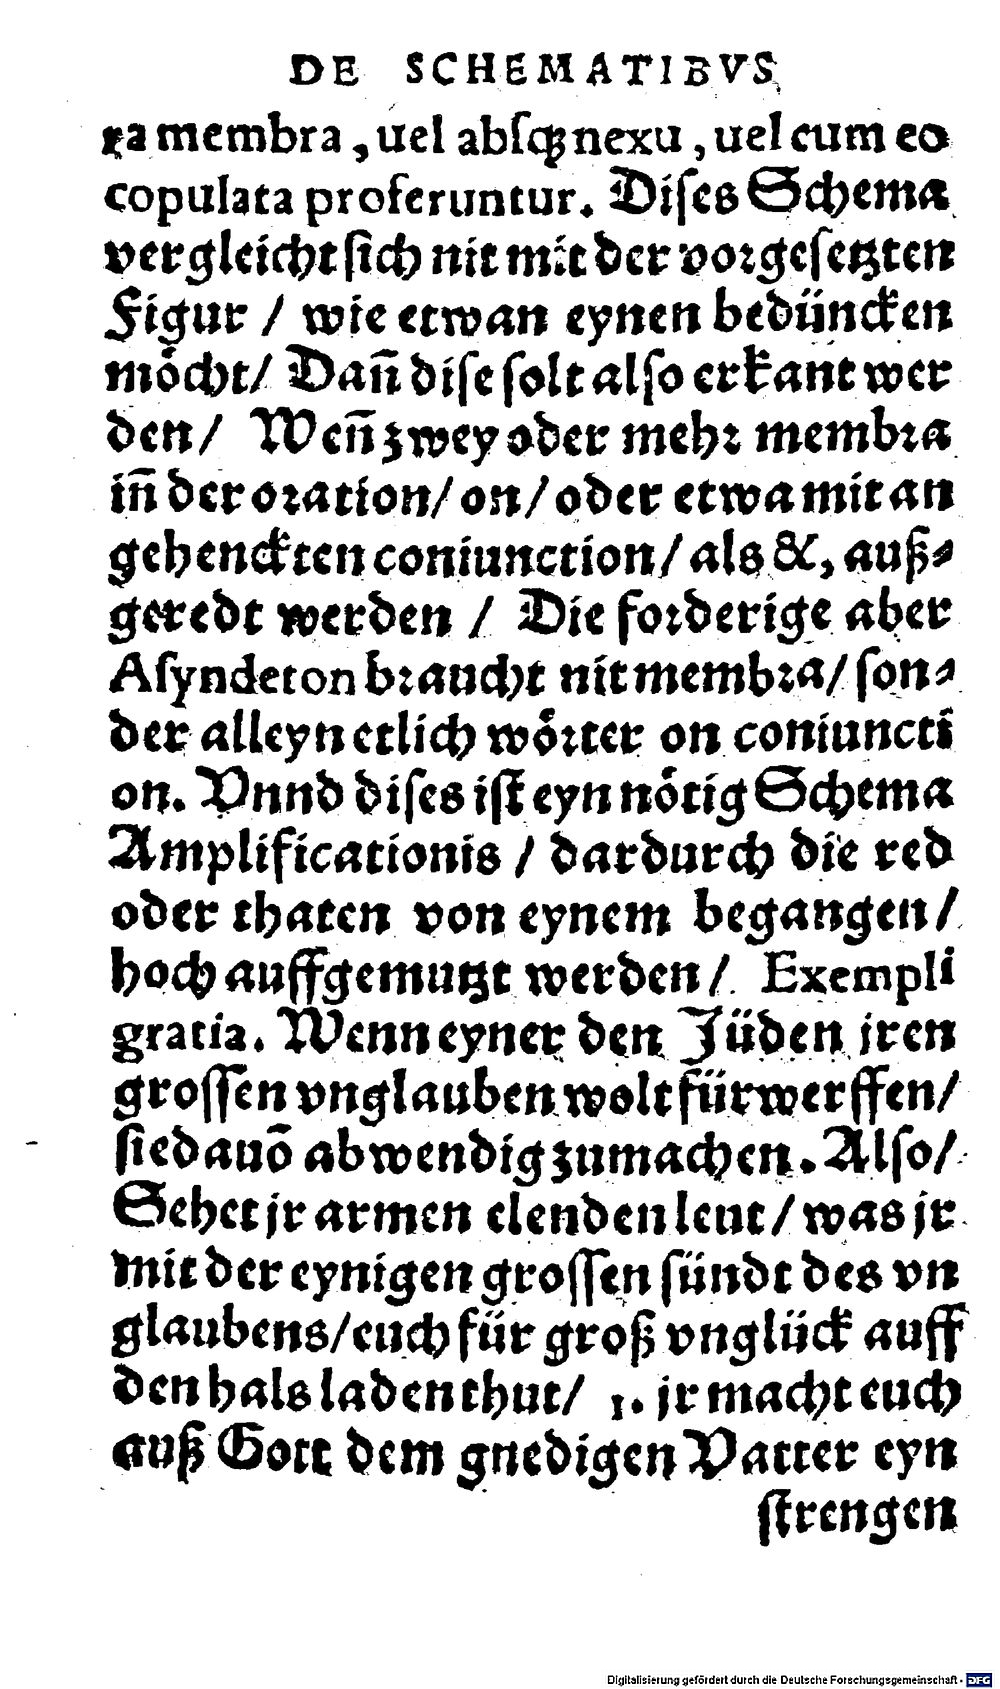 DE SCHEMATIBVS
ra membra, uel absq́ꝫ nexu, uel cum eo
copulata proferuntur. Dises Schema
vergleicht sich nit mit der vorgesetzten
Figur / wie etwan eynen bedüncken
moͤcht/ Dañ dise solt also erkant wer
den/ Weñ zwey oder mehr membra
iñ der oration/ on/ oder etwa mit an
gehenckten coniunction/ als &, auß⸗
geredt werden / Die forderige aber
Asyndeton braucht nit membra/ son⸗
der alleyn etlich woͤrter on coniuncti
on. Vnnd dises ist eyn noͤtig Schema
Amplificationis / dardurch die red
oder thaten von eynem begangen/
hoch auffgemutzt werden/ Exempli
gratia. Wenn eyner den Jüden jren
grossen vnglauben wolt fürwerffen/
sie dauõ abwendig zumachen. Also/
Sehet jr armen elenden leut/ was jr
mit der eynigen grossen sündt des vn
glaubens/ euch für groß vnglück auff
den hals laden thut/ 1. jr macht euch
auß Gott dem gnedigen Vatter eyn
strengen
Digitalisierung gefördert durch die Deutsche Forschungsgemeinschaft - DFG